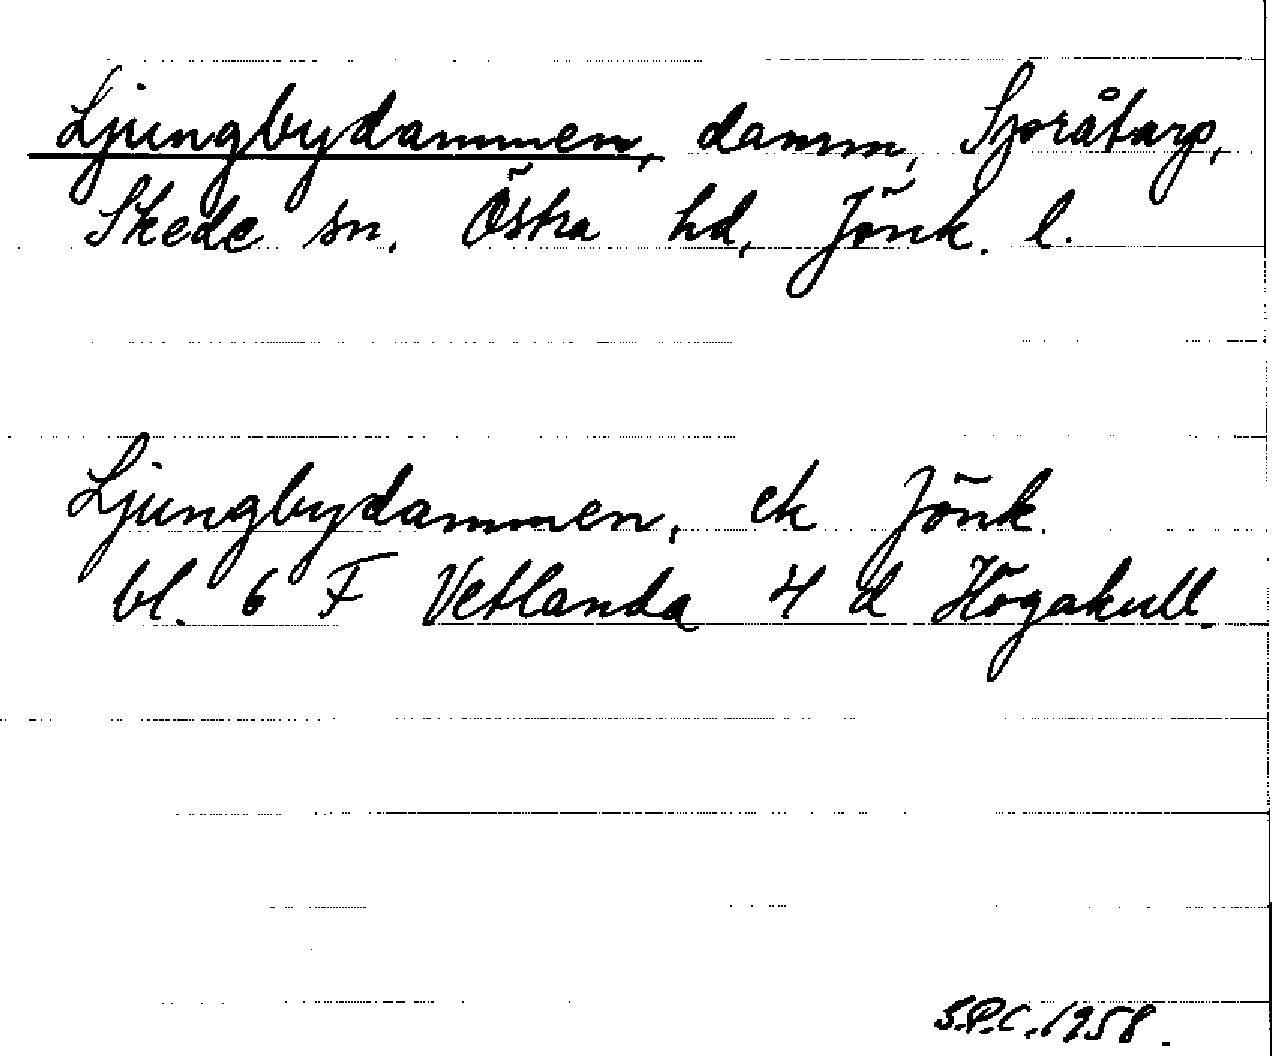 Ljungbydammen, damm, Sporåtarp,
Skede sn. Östra hd, Jönk. l.
Ljungbydammen, ek Jönk.
bl. 6 F Vetlanda 4 d Högakull.
S.P.C. 1958.